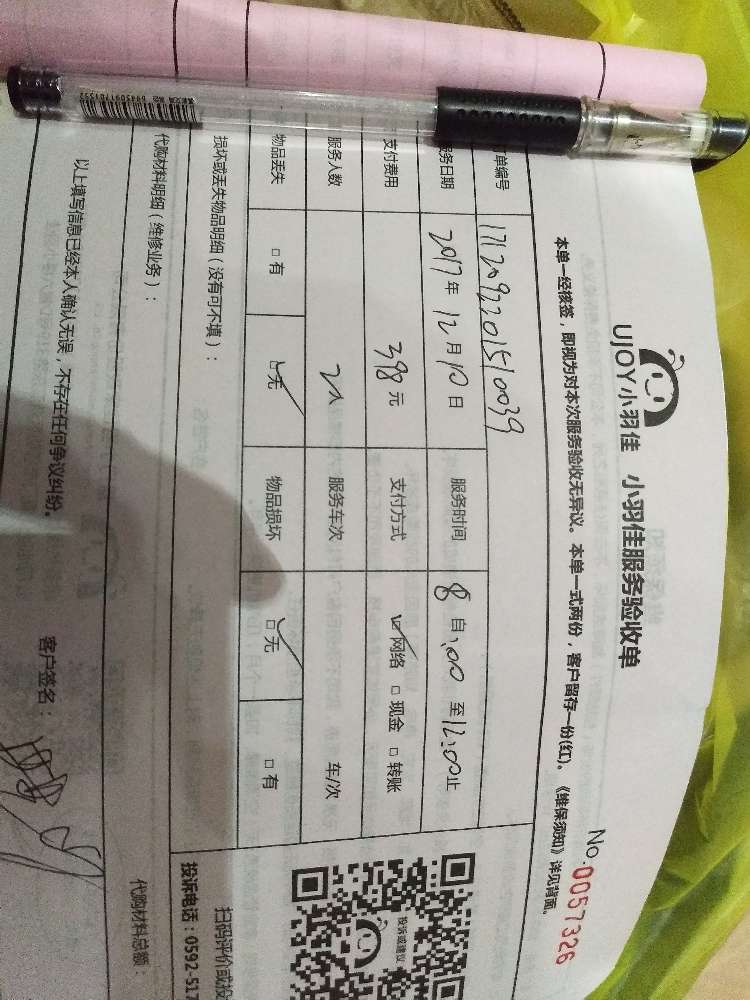 UJOY小羽佳 小羽佳服务验收单
No.0057326
本单一经核签，即视为对本次服务验收无异议。本单一式两份，客户留存一份(红)。《维保须知》详见背面。
单编号 1712092201510039
务日期 2017年12月10日 服务时间 8自:00至12:00止
支付费用 398元 支付方式 网络 □现金 □转账
服务人数 2人 服务车次 车/次
物品丢失 □有 □无 物品损坏 □无 □有
损坏或丢失物品明细（没有可不填）：
代购材料明细（维修业务）：
代购材料总额：
以上填写信息已经本人确认无误，不存在任何争议纠纷。 客户签名：
投诉或建议
扫码评价或投
投诉电话：0592-517